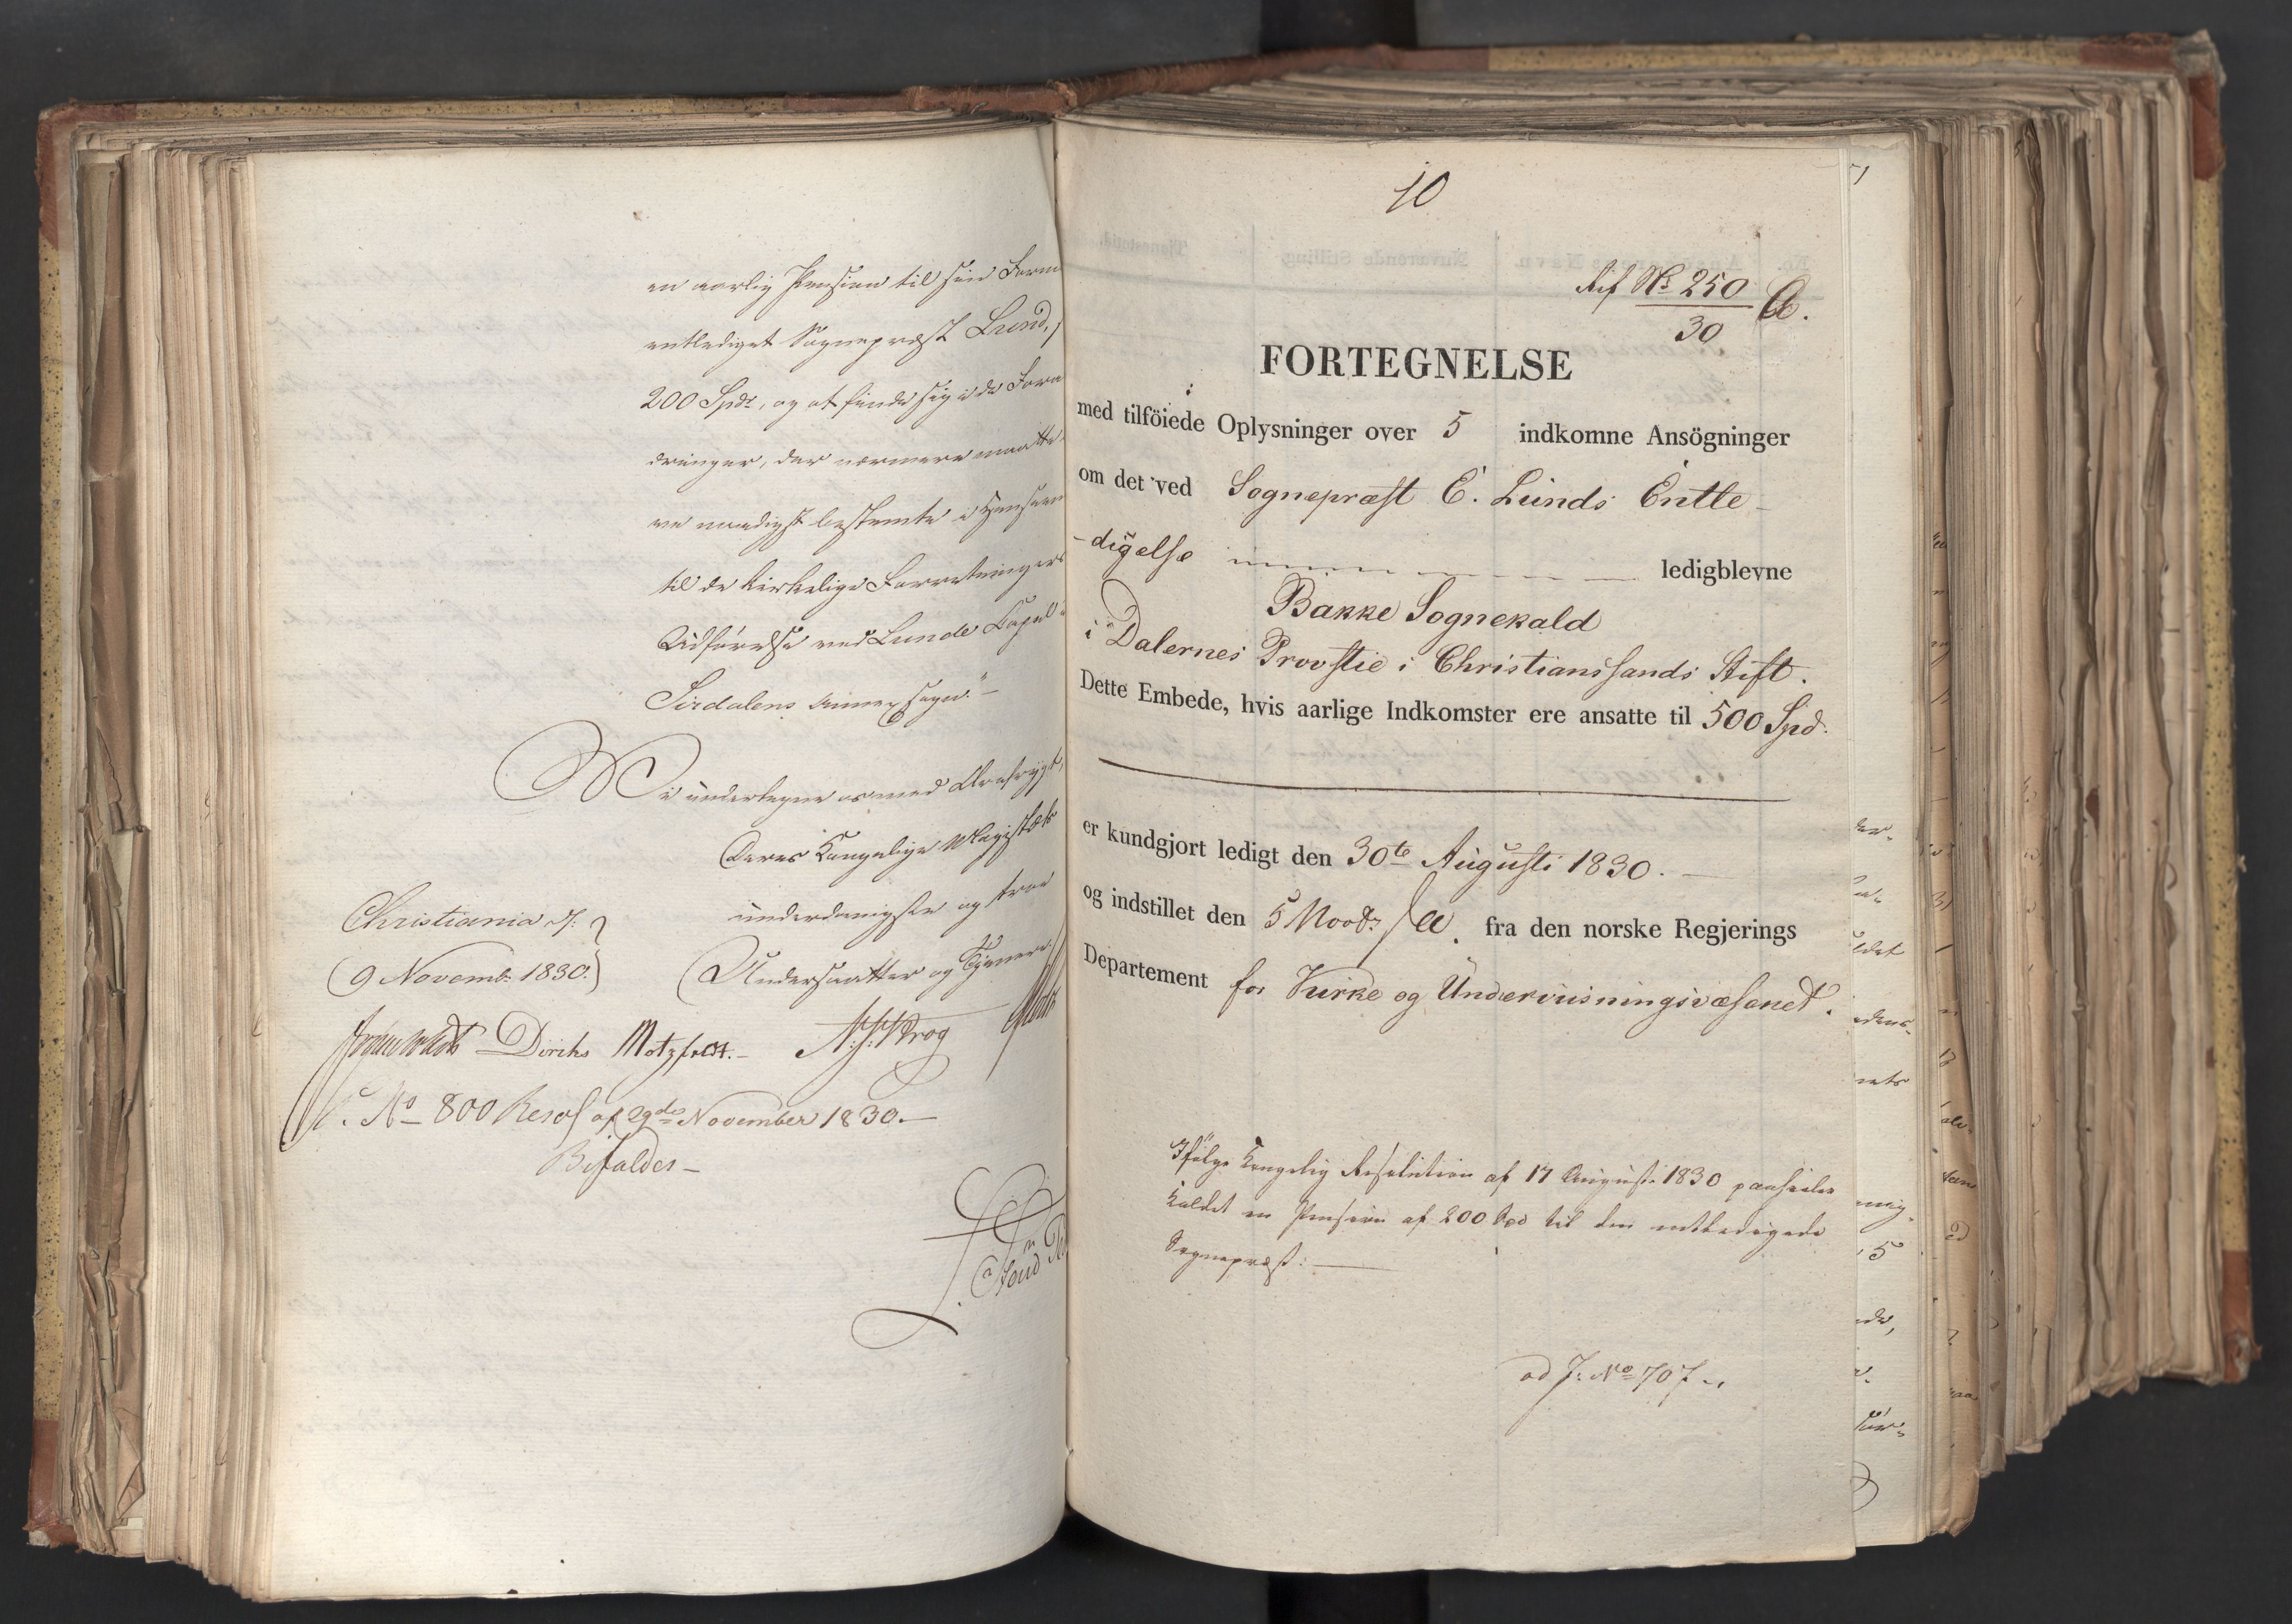 en aarlig Pension til sin Form
entlediget Sognepræst Lund,
200 Spdr, og at finde sig i de Foran
dringer, der nærmere maatte
naadigst bestemte i Henseen
til de kirkelige Forretningers
Udførelse ved Lunde Capel
Sirdalens Annexsogn."
Vi undertegne os med Ærefrygt,
Deres Kongelige Majestæts
underdanigste og troe
Undersaatter og Tjenere
Christiania d:
9 Novembr 1830.
Diriks Motzfeldt. Krog
No 800 Resol af 29de November 1830.
Bifaldes
10
No 250
30
FORTEGNELSE
med tilföiede Oplysninger over 5 indkomne Ansögninger
om det ved Sognepræst E. Lunds Entle-
-digelse ledigblevne
Bakke Sognekald
i Dalernes Provstie i Christianssands Stift.
Dette Embede, hvis aarlige Indkomster ere ansatte til 500 Spd.
er kundgjort ledigt den 30te Augusti 1830.
og indstillet den 5 Novbr s. A. fra den norske Regjerings
Departement for Kirke og Underviisningsvæsenet.
Ifølge Kongelig Resolution af 17 August 1830 paahviler
Kaldet en Pension af 200 Spd til den entledigede
Sognepræst.
ad J: No 707